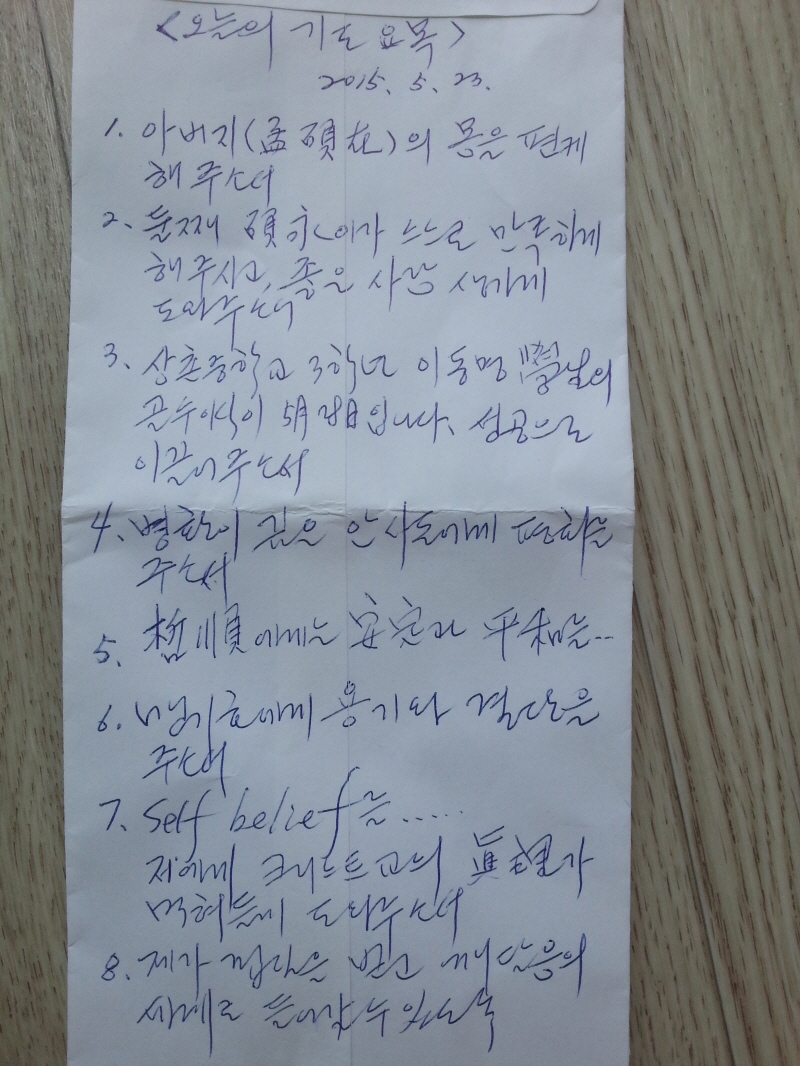 <오늘의 기도 요목>
2015. 5. 23.
1. 아버지(孟碩在)의 몸을 편케
해 주소서
2. 둘째 碩永이가 스스로 만족하게
해주시고, 좋은 사람 생기게
도와주소서
3. 상촌중학교 3학년 이동명 학생의
골수이식이 5月 28日입니다. 성공으로
이끌어주소서
4. 병환이 깊은 안사돈에게 평화를
주소서
5. 順에게는 安定과 平和를..
6. 에게 용기와 결단을
주소서
7. Self belief를.....
저에게 크리스트교의 眞理가
먹혀들게 도와주소서
8. 제가 받고 깨달음의
세계로 들어갈 수 있도록